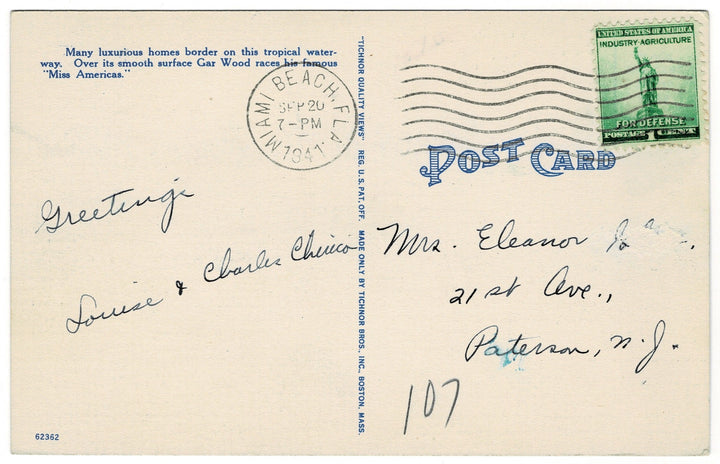 Many luxurious homes border on this tropical water-
way. Over its smooth surface Gar Wood races his famous
"Miss Americas."
MIAMI BEACH, FLA.
SEP 20
7-PM
1941
UNITED STATES OF AMERICA
INDUSTRY·AGRICULTURE
FOR DEFENSE
POSTAGE 1 CENT
POST CARD
"TICHNOR QUALITY VIEWS" REG. U.S. PAT. OFF. MADE ONLY BY TICHNOR BROS., INC., BOSTON, MASS.
Greetings
Louise & Charles
Mrs. Eleanor
21st Ave.,
Paterson, N.J.
107
62362